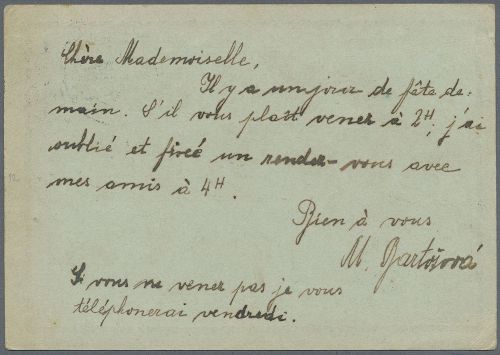 Chère Mademoiselle,
Il y a un jour de fête de-
main. S'il vous plaît vener à 2H, j'ai
oublié et fixé un render-vous avec
mes amis à 4H.
Bien à vous
M. Bartošová
Si vous ne vener pas je vous
téléphonerai vendredi.